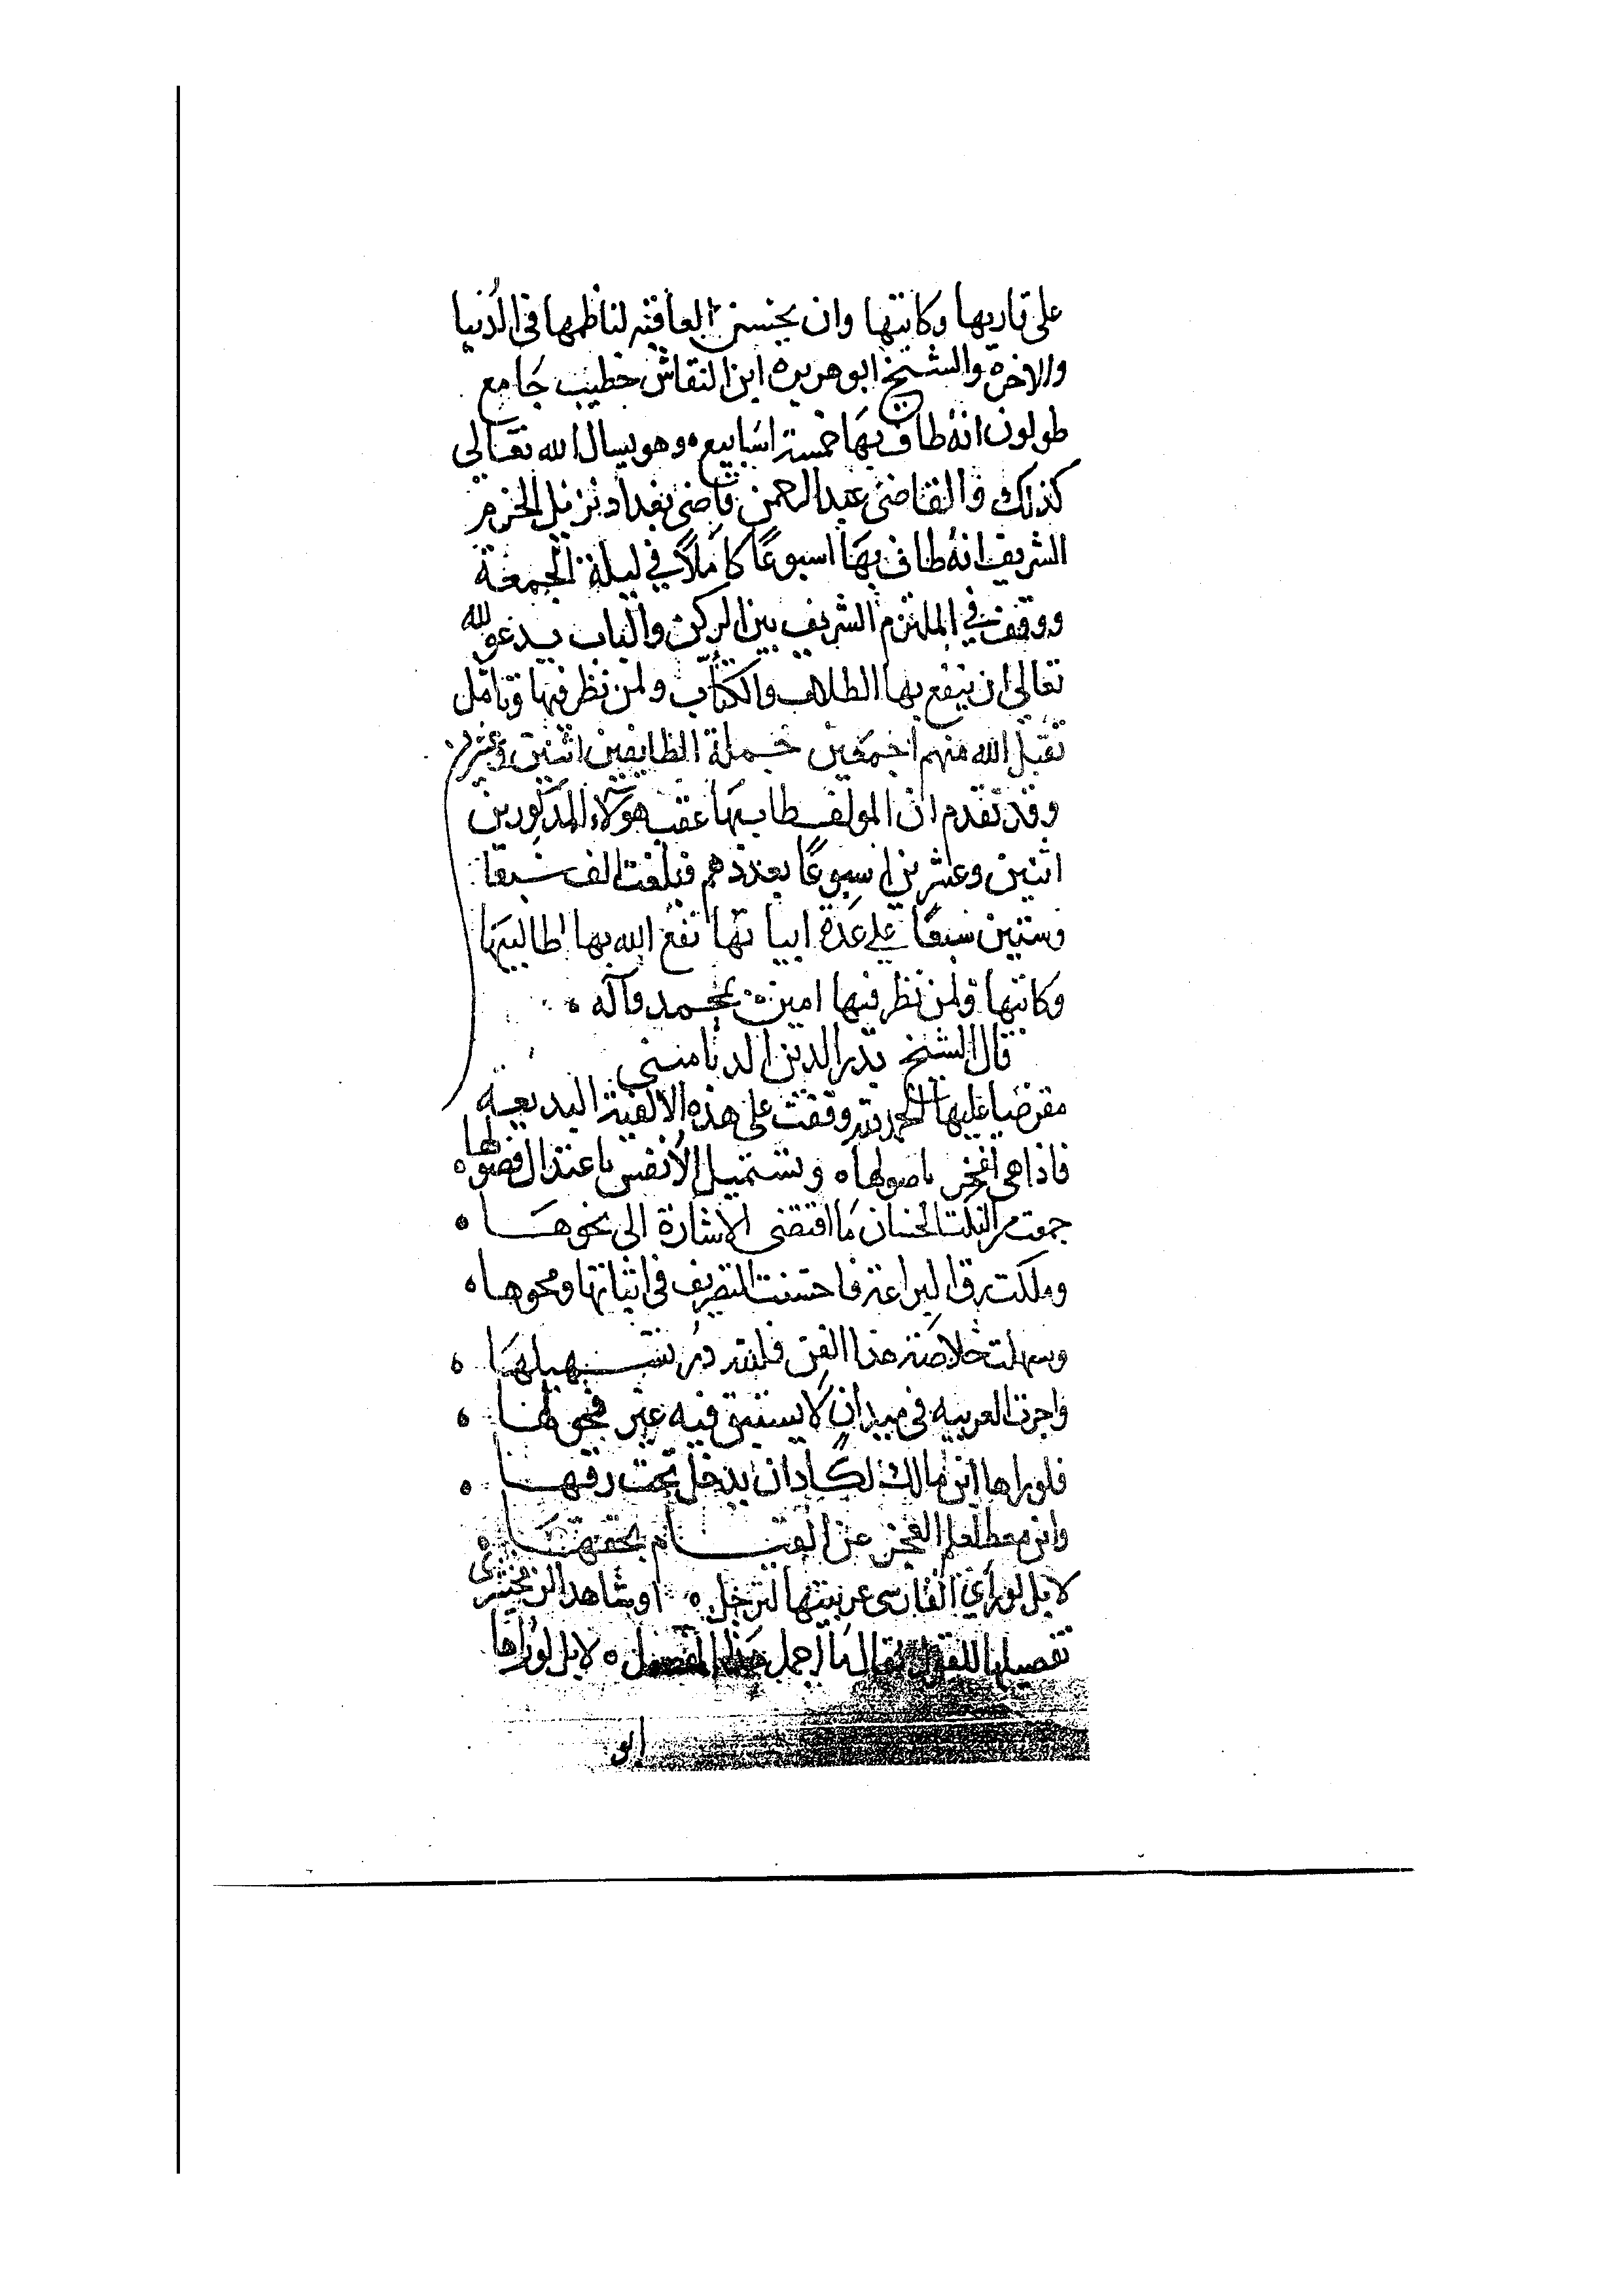 على قاريها وكاتبها وان يحسن العاقبه لناظمها في الدنيا
والاخره والشيخ ابو هريره ابن النقاش خطيب جامع
طولون انه طاف بها خمسة اسابيع وهو يسال الله تعالى
كذلك والقاضى عبد الرحمن قاضى بغداد نزيل الحرم
الشريف انه طاف بها اسبوعًا كاملاً في ليلة الجمعة
ووقف في الملتزم الشريف بين الركن والباب يدعو الله
تعالى ان ينفع بها الطلاب والكتاب ولمن نظر فيها وتامل
تقبل الله منهم اجمعين جملة الطايفين اثنين وعشرين
وقد تقدم ان المولف طاف بها عقب هولاء المذكورين
اثنين وعشرين اسبوعًا بعددهم فبلغت الف سبعا
وستين سبعًا على عدة ابياتها نفع الله بها لطالبيها
وكاتبها ولمن نظر فيها امين بمحمد وآله ه
قال الشيخ بدر الدين الدمامينى
مقرضا عليها الحمد لله وقفت على هذه الالفية البديعة
فاذا هي تفخر باصولها ه وتستميل الأنفس باعتدال فصولها ه
جمعت من النكت الحسان ما اقتضى الاشارة الى نحوها ه
وملكت رق البراعة فاحسنت التصريف في اثباتها ومحوها ه
وسهلت خلاصة هذا الفن فلله در تسهيلها ه
واجرت العربيه في ميدان لا يستبق فيه غير فحولها ه
فلو راها ابن مالك لكاد ان يدخل تحت رقها ه
وابن معط لعلم العجز عن القيام بحقها ه
لا بل لو رأى الفارسى عربيتها لترجل ه او شاهد الزمخشرى
تفصيلها للقول لقال ما اجمل هذا المفصل ه لا بل لو راها
ابو